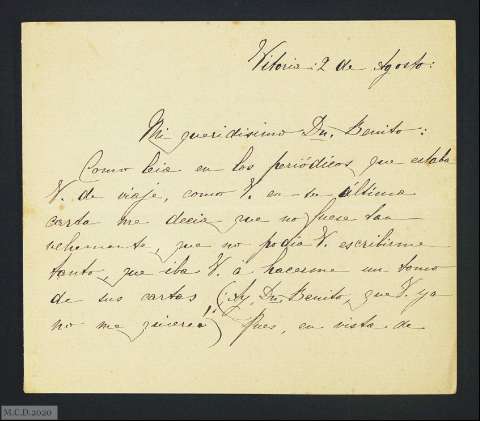 Vitoria: 2 de Agosto:
Mi queridisimo Dn. Benito:
Como leia en los periódicos que estaba
V. de viaje, como V. en su última
carta me decia que no fuese tan
vehemente, que no podia V. escribirme
tanto, que iba V. á hacerme un tomo
de sus cartas, (¡Ay, Dn. Benito, que V. ya
no me quiere!) Pues, en vista de
M.C.D.2020